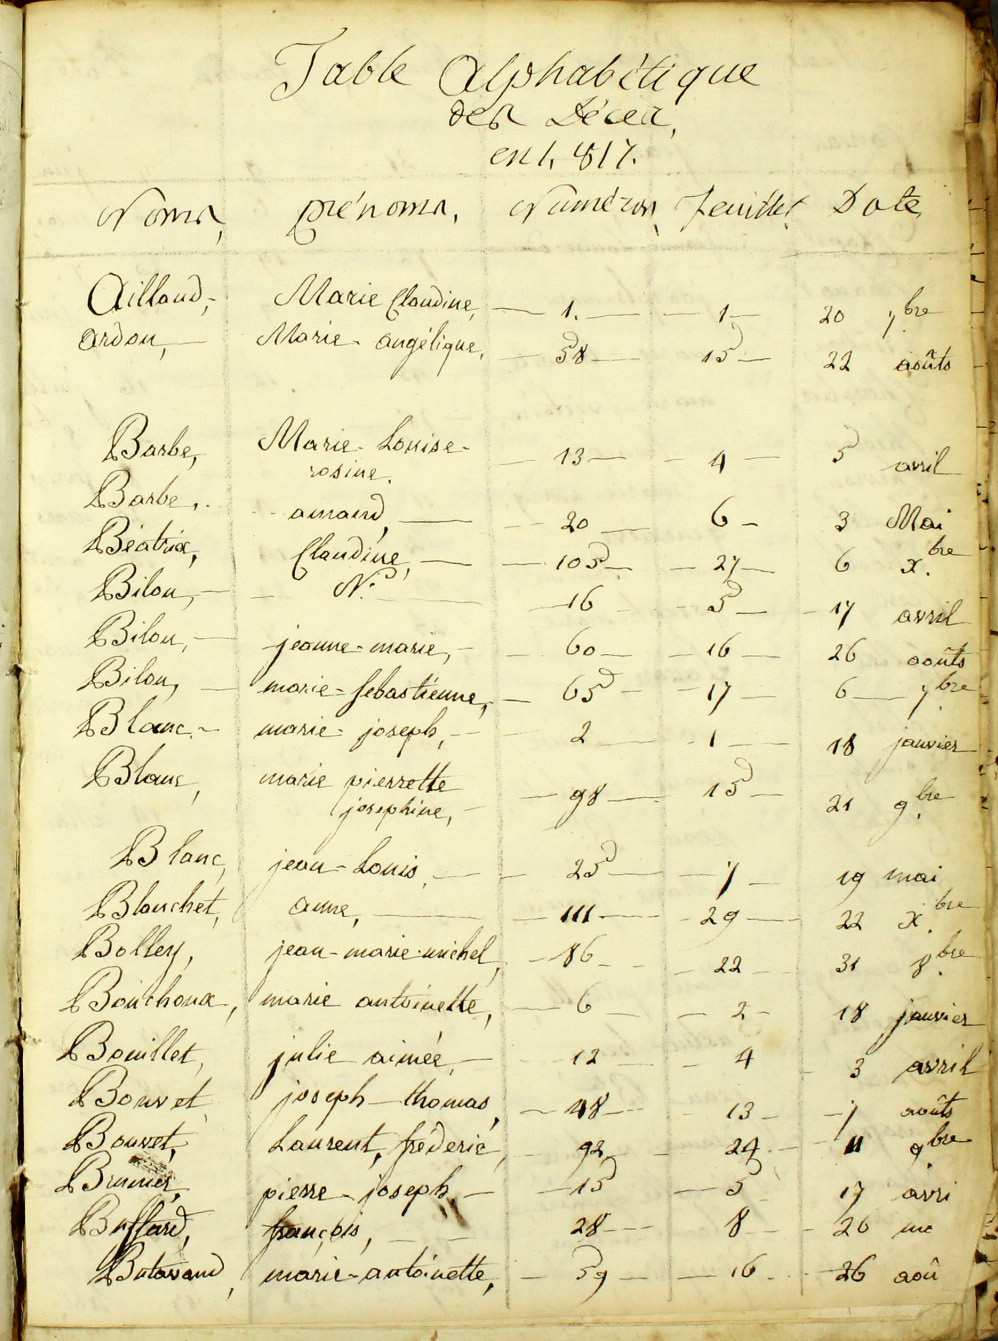 Table Alphabétique
des Décès,
en 1,817.
Noms, prénoms, Numéros, feuillet, Date,
Aillaud,- Marie Claudine, 1. 1 20 7.bre
ardon, Marie-angélique, 58 15 22 aoûts
Barbe, Marie-Louise-
rosine. 13 4 5 avril
Barbe, amand, 20 6 3 Mai
Béatrix, Claudine, 105 27 6 x.bre
Bilon, N. 16 5 17 avril
Bilon, jeanne-marie, 60 16 26 aoûts
Bilon, marie-sebastienne, 65 17 6 7bre
Blanc marie-joseph, 2 1 18 janvier
Blanc, marie pierrette
josephine, 98 15 21 9.bre
Blanc, jean-Louis, 25 7 19 mai
Blanchet, anne, 111 29 22 x.bre
Bolley, jean-marie-michel, 86 22 31 8.bre
Bouchoux, marie antoinette, 6 2 18 janvier
Bouillet, julie aimée, 12 4 3 avril
Bouvet, joseph-thomas, 48 13 7 aoûts
Bouvet, Laurent, fréderic, 92 24 11 9.bre
Brunier, pierre-joseph, 15 5 17 avri
Buffard, françois, 28 8 26 ma
Butavand, marie-antoinette, 59 16 26 aoû